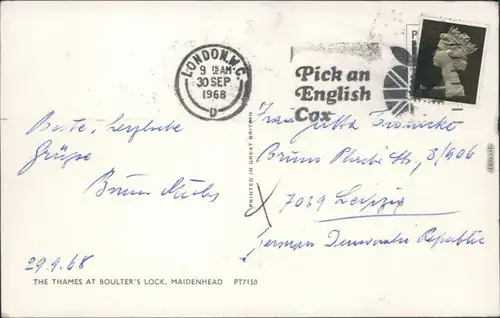 LONDON.W.C.
9 15 AM
30 SEP
1968
D
Pick an
English
Cox
Beste, herzliche
Grüße
29.9.68
Frau
Bruno Str., 8/906
7039 Leipzig
German Democratic Republic
PRINTED IN GREAT BRITAIN
THE THAMES AT BOULTER'S LOCK, MAIDENHEAD PT7150